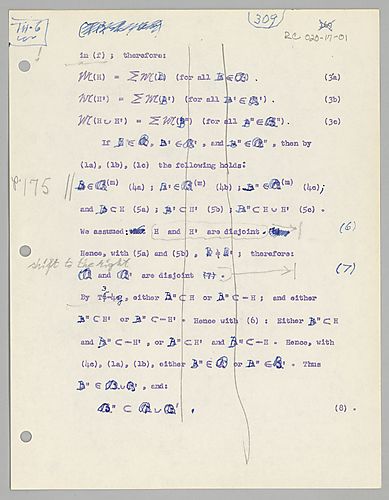 III-6
309
RC 020-17-01
in (f) ; therefore:
𝔐(H) = Σ𝔐(B) (for all B ∈ 𝔅) . (3a)
𝔐(H') = Σ𝔐(B') (for all B' ∈ 𝔅') . (3b)
𝔐(H ∪ H') = Σ𝔐(B") (for all B" ∈ 𝔅") . (3c)
If B ∈ 𝔅, B' ∈ 𝔅', and B" ∈ 𝔅", then by
(1a), (1b), (1c) the following holds:
p.175 || B ∈ 𝔅(m) (4a) ; B' ∈ 𝔅(m) (4b) ; B" ∈ 𝔅(m) (4c);
and B ⊂ H (5a) ; B' ⊂ H' (5b) ; B" ⊂ H ∪ H' (5c) .
We assumed: H and H' are disjoint . (6)
Hence, with (5a) and (5b), B ≠ B' ; therefore:
shift to the right
𝔅 and 𝔅' are disjoint . (7)
By T , either B" ⊂ H or B" ⊂ -H ; and either
B" ⊂ H' or B" ⊂ -H' . Hence with (6) : Either B" ⊂ H
and B" ⊂ -H' , or B" ⊂ H' and B" ⊂ -H . Hence, with
(4c), (1a), (1b), either B" ∈ 𝔅 or B" ∈ 𝔅' . Thus
B" ∈ 𝔅 ∪ 𝔅' , and:
𝔅" ⊂ 𝔅 ∪ 𝔅' . (8) .